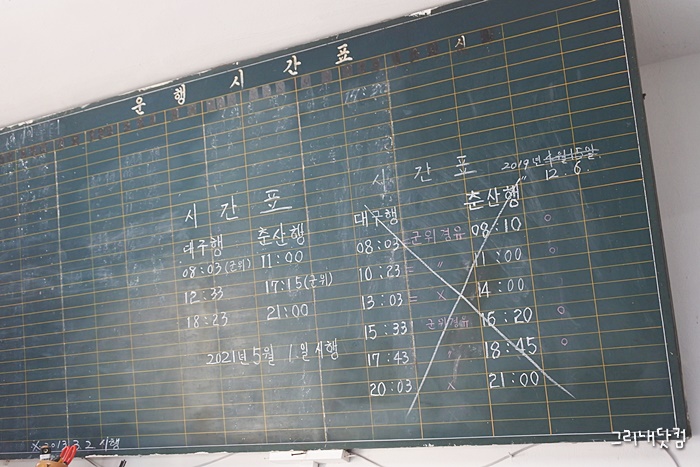 운행시간표
시간표
대구행 춘산행
08:03(군위) 11:00
12:33 17:15(군위)
18:23 21:00
2021년 5월 1일 시행
시간표
2019년 4월 15일
〃 12. 6.
대구행 춘산행
08:03 = 군위경유 08:10 ○
10:23 = 〃 11:00 ○
13:03 = × 14:00
15:33 군위경유 16:20 ○
17:43 〃 18:45 ○
20:03 × 21:00
※ 2013. 3. 2. 시행
그리내닷컴